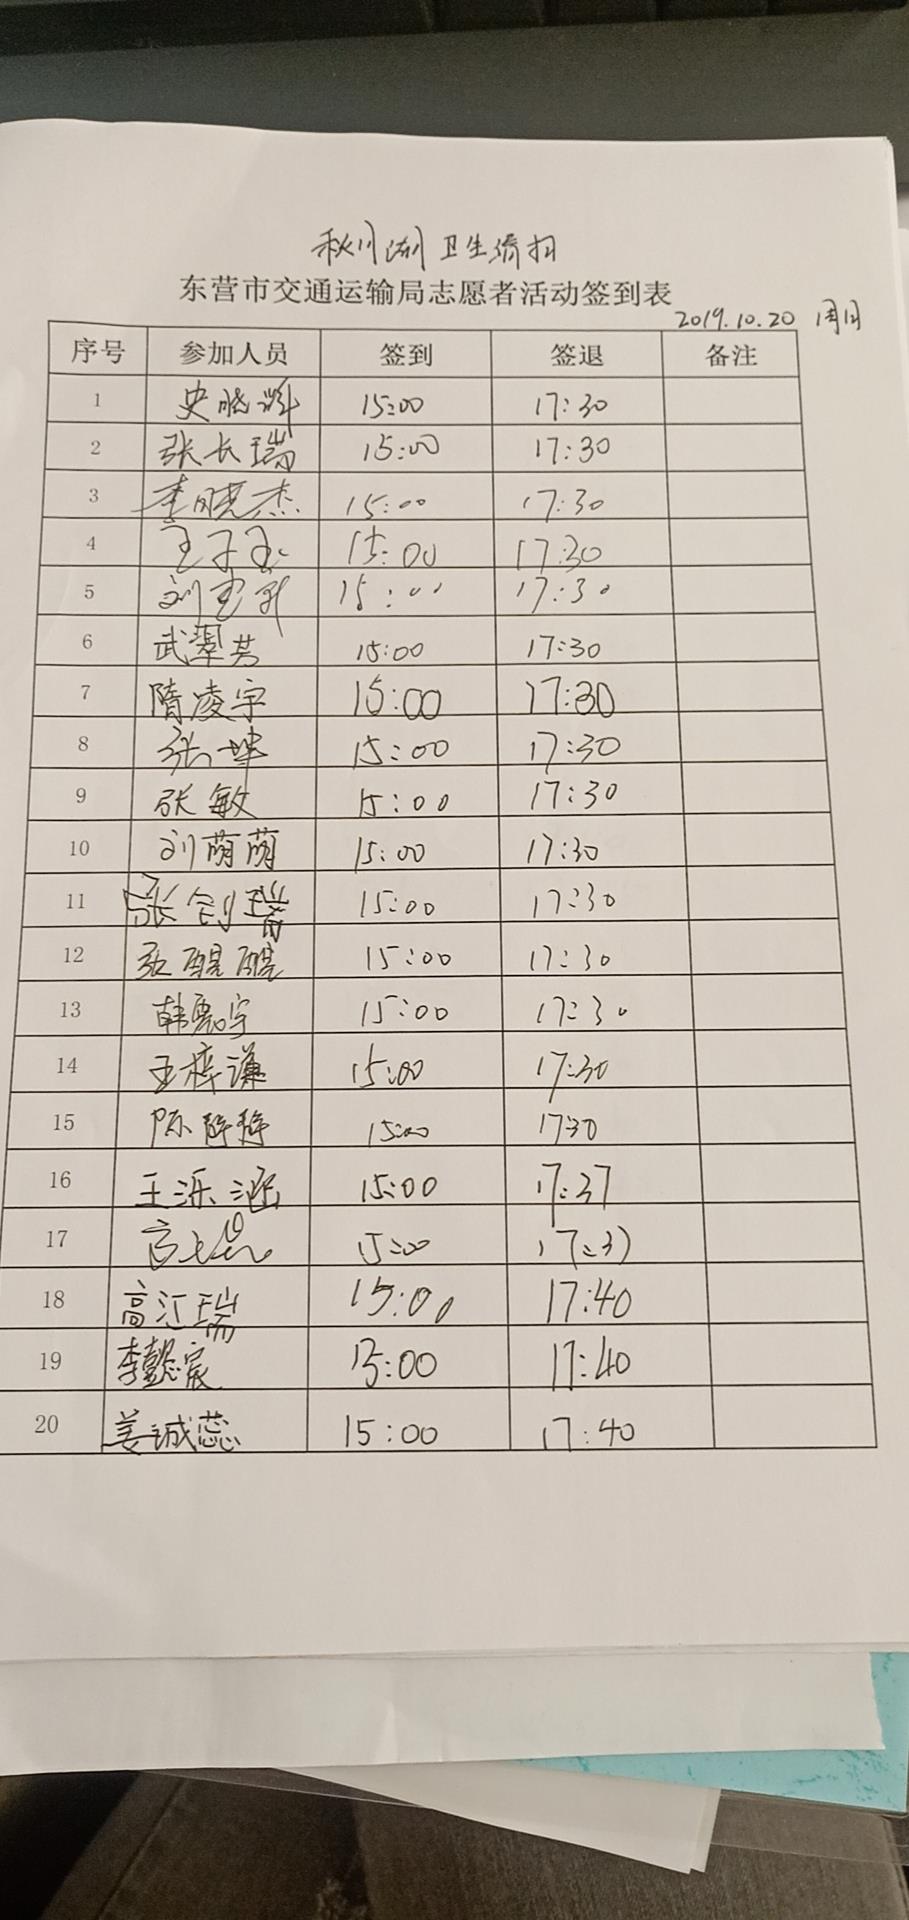 卫生清扫
东营市交通运输局志愿者活动签到表
2019.10.20 周日
序号 参加人员 签到 签退 备注
1 史晓辉 15:00 17:30
2 张长瑞 15:00 17:30
3 李晓杰 15:00 17:30
4 王子玉 15:00 17:30
5 刘 15:00 17:30
6 武翠芳 15:00 17:30
7 隋凌宇 15:00 17:30
8 张坤 15:00 17:30
9 张敏 15:00 17:30
10 刘萌萌 15:00 17:30
11 张剑瑞 15:00 17:30
12 张醒醒 15:00 17:30
13 韩 宇 15:00 17:30
14 王梓谦 15:00 17:30
15 陈 15:00 17:30
16 王泺涵 15:00 17:37
17 高 15:00
18 高江瑞 15:00 17:40
19 李懿宸 15:00 17:40
20 姜诚蕊 15:00 17:40